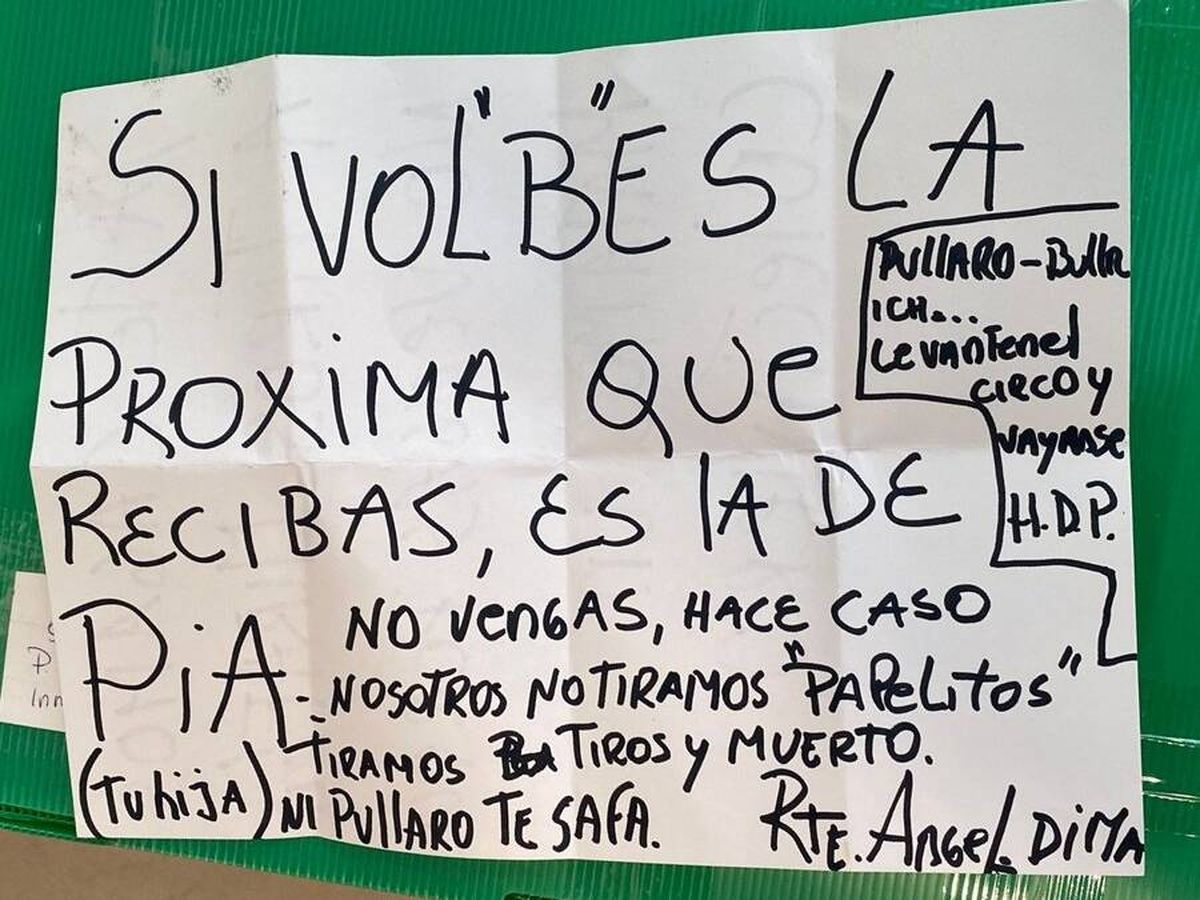 SI VOL"B"ES LA
PROXIMA QUE
RECIBAS, ES LA DE
PiA-
(Tu hija)
NO VENGAS, HACE CASO
NOSOTROS NO TIRAMOS "PAPELITOS"
TIRAMOS TIROS y MUERTO.
NI PULLARO TE SAFA.
RTE. ANGEL DiMA
PULLARO-Bullr
ICH...
LEVANTEN EL
CIRCO y
VAYANSE
H.D.P.